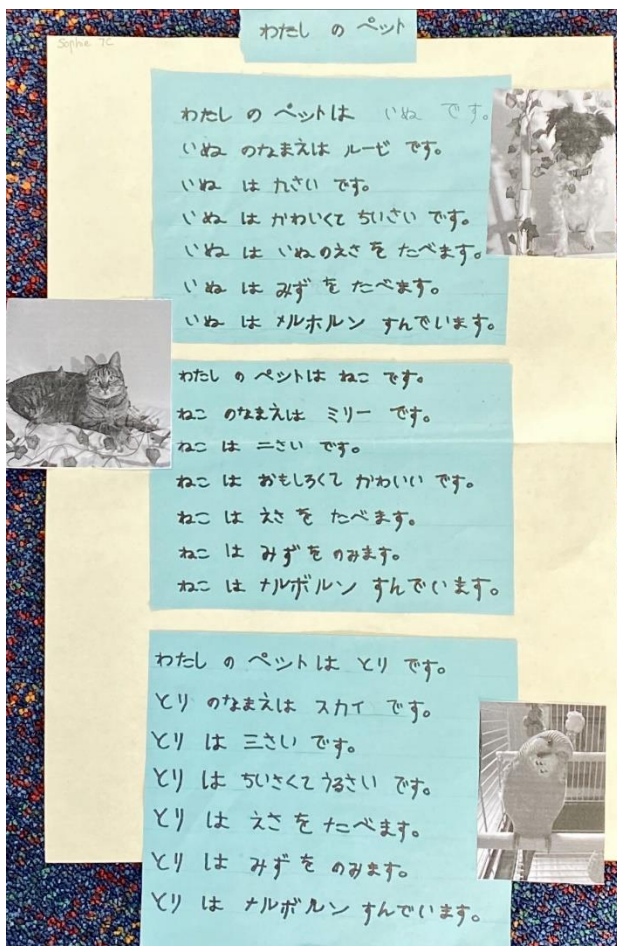 わたし の ペット
Sophie 7C
わたし の ペットは いぬ です。
いぬ のなまえは ルービ です。
いぬ は 九さい です。
いぬ は かわいくて ちいさい です。
いぬ は いぬのえさ を たべます。
いぬ は みず を たべます。
いぬ は メルホルン すんでいます。
わたし の ペットは ねこ です。
ねこ のなまえは ミリー です。
ねこ は 二さい です。
ねこ は おもしろくて かわいい です。
ねこ は えさ を たべます。
ねこ は みず を のみます。
ねこ は ナルボルン すんでいます。
わたし の ペットは とり です。
とり のなまえは スカイ です。
とり は 三さい です。
とり は ちいさくて うるさい です。
とり は えさ を たべます。
とり は みず を のみます。
とり は ナルボルン すんでいます。